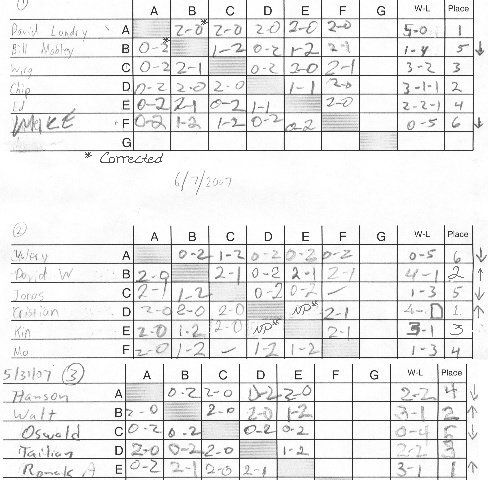 ①
A B C D E F G W-L Place
David Landry A 2-0* 2-0 2-0 2-0 2-0 5-0 1
Bill Mobley B 0-2* 1-2 0-2 1-2 2-1 1-4 5 ↓
C 0-2 2-1 0-2 2-0 2-1 3-2 3
Chip D 0-2 2-0 2-0 1-1 2-0 3-1-1 2
Ed E 0-2 2-1 0-2 1-1 2-0 2-2-1 4
MIKE F 0-2 1-2 1-2 0-2 0-2 0-5 6 ↓
G
* Corrected
6/7/2007
②
A B C D E F G W-L Place
Valery A 0-2 1-2 0-2 0-2 0-2 0-5 6 ↓
David W B 2-0 2-1 0-2 2-1 2-1 4-1 2 ↑
Jonas C 2-1 1-2 0-2 0-2 – 1-3 5 ↓
Kristian D 2-0 2-0 2-0 NP* 2-1 4-0 1 ↑
Kin E 2-0 1-2 2-0 NP* 2-1 3-1 3
Mo F 2-0 1-2 – 1-2 1-2 1-3 4
5/31/07 ③ A B C D E F G W-L Place
Hanson A 0-2 2-0 0-2 2-0 2-2 4 ↓
Walt B 2-0 2-0 2-0 1-2 3-1 2 ↑
Oswald C 0-2 0-2 0-2 0-2 0-4 5 ↓
Taitian D 2-0 0-2 2-0 1-2 2-2 3
Ronak A E 0-2 2-1 2-0 2-1 3-1 1 ↑